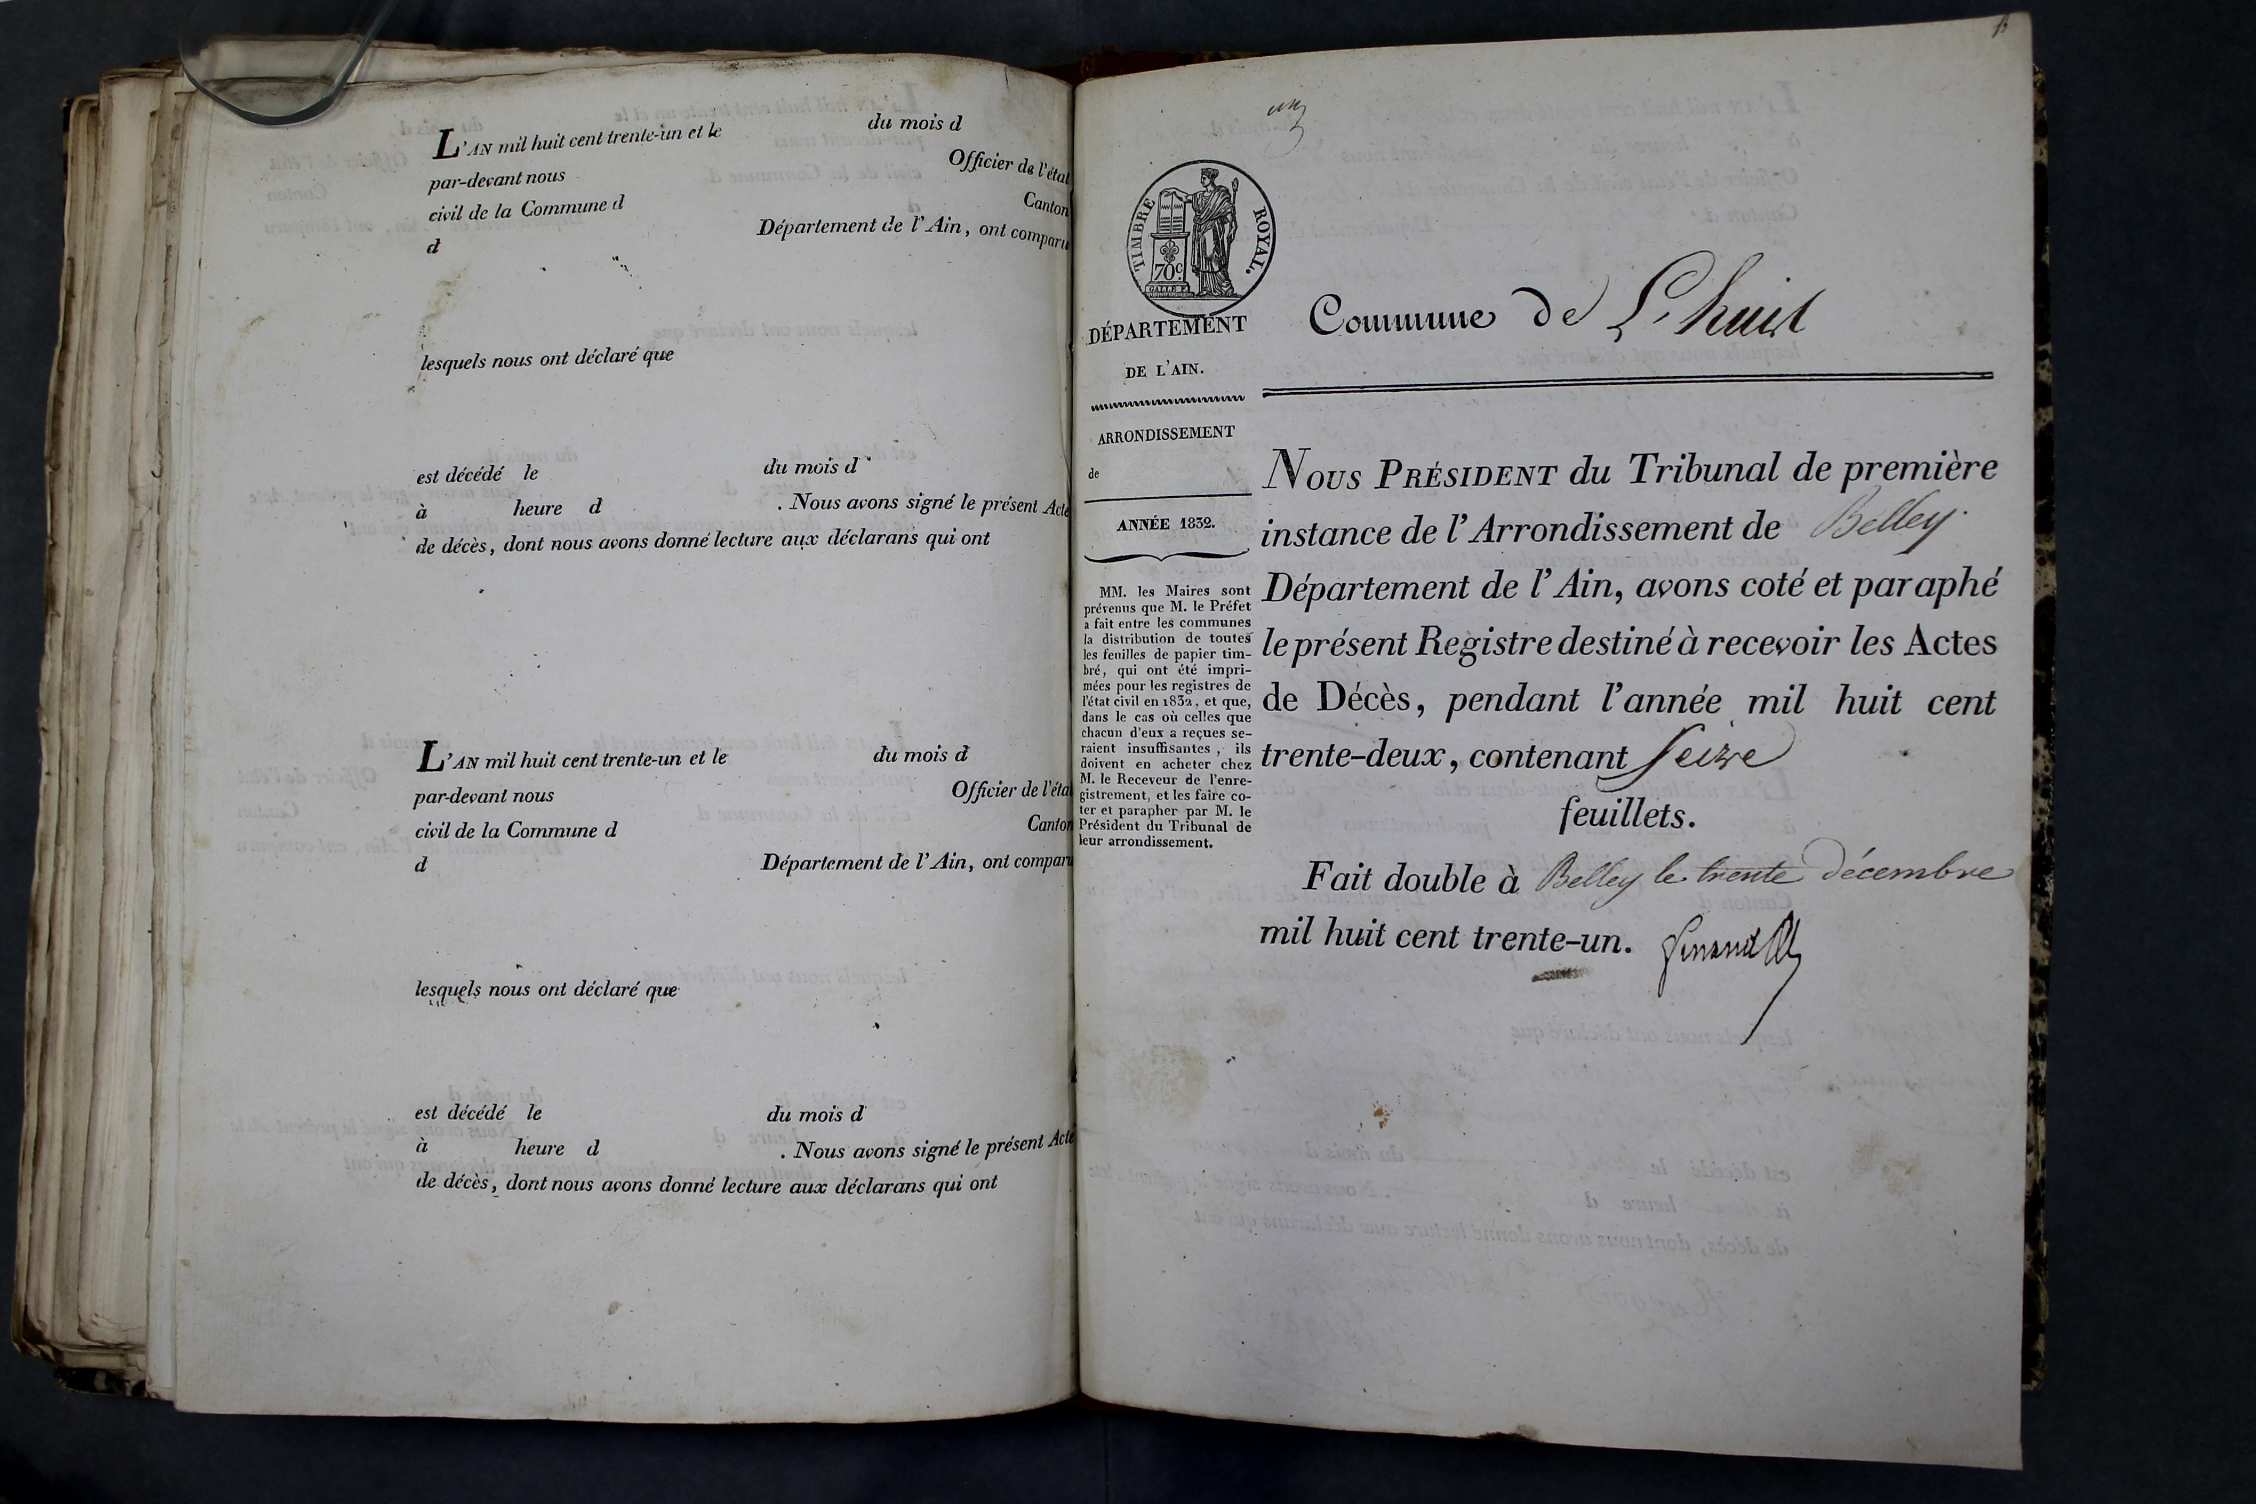 L'AN mil huit cent trente-un et le du mois d
par-devant nous Officier de l'état
civil de la Commune d Canton
d Département de l'Ain, ont comparu
lesquels nous ont déclaré que
est décédé le du mois d
à heure d . Nous avons signé le présent Acte
de décès, dont nous avons donné lecture aux déclarans qui ont
L'AN mil huit cent trente-un et le du mois d
par-devant nous Officier de l'état
civil de la Commune d Canton
d Département de l'Ain, ont comparu
lesquels nous ont déclaré que
est décédé le du mois d
à heure d . Nous avons signé le présent Acte
de décès, dont nous avons donné lecture aux déclarans qui ont
TIMBRE ROYAL.
70c.
GALLE F.
DÉPARTEMENT
DE L'AIN.
ARRONDISSEMENT
de
ANNÉE 1832.
MM. les Maires sont
prévenus que M. le Préfet
a fait entre les communes
la distribution de toutes
les feuilles de papier tim-
bré, qui ont été impri-
mées pour les registres de
l'état civil en 1832, et que,
dans le cas où celles que
chacun d'eux a reçues se-
raient insuffisantes, ils
doivent en acheter chez
M. le Receveur de l'enre-
gistrement, et les faire co-
ter et parapher par M. le
Président du Tribunal de
leur arrondissement.
Commune de L'huis
NOUS PRÉSIDENT du Tribunal de première
instance de l'Arrondissement de Belley
Département de l'Ain, avons coté et paraphé
le présent Registre destiné à recevoir les Actes
de Décès, pendant l'année mil huit cent
trente-deux, contenant Seize
feuillets.
Fait double à Belley le trente décembre
mil huit cent trente-un.